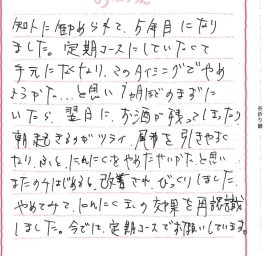 知人に勧められて、5年目になり
ました。定期コースにしていなくて
手元になくなり、このタイミングでやめ
ようかな…と思い1カ月ほどのまずに
いたら、翌日に、お酒が残ってしまったり
朝起きるのがツライ、風邪を引きやすく
なり、ふと、にんにくをやめたせいかな?と思い
またのみはじめると、改善され、びっくりしました。
やめてみて、にんにく玉の効果を再認識
しました。今では、定期コースでお願いしています。